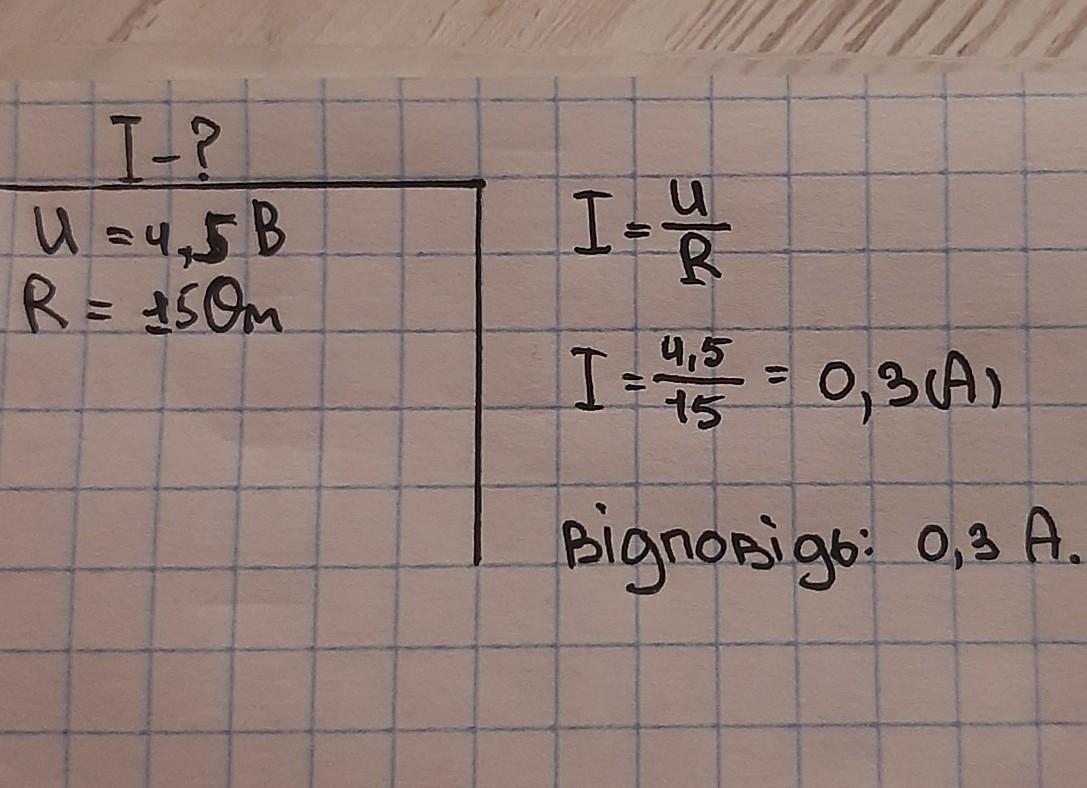 I - ?
U = 4,5 В
R = 15 Ом
I = U/R
I = 4,5/15 = 0,3 (А)
Відповідь: 0,3 А.